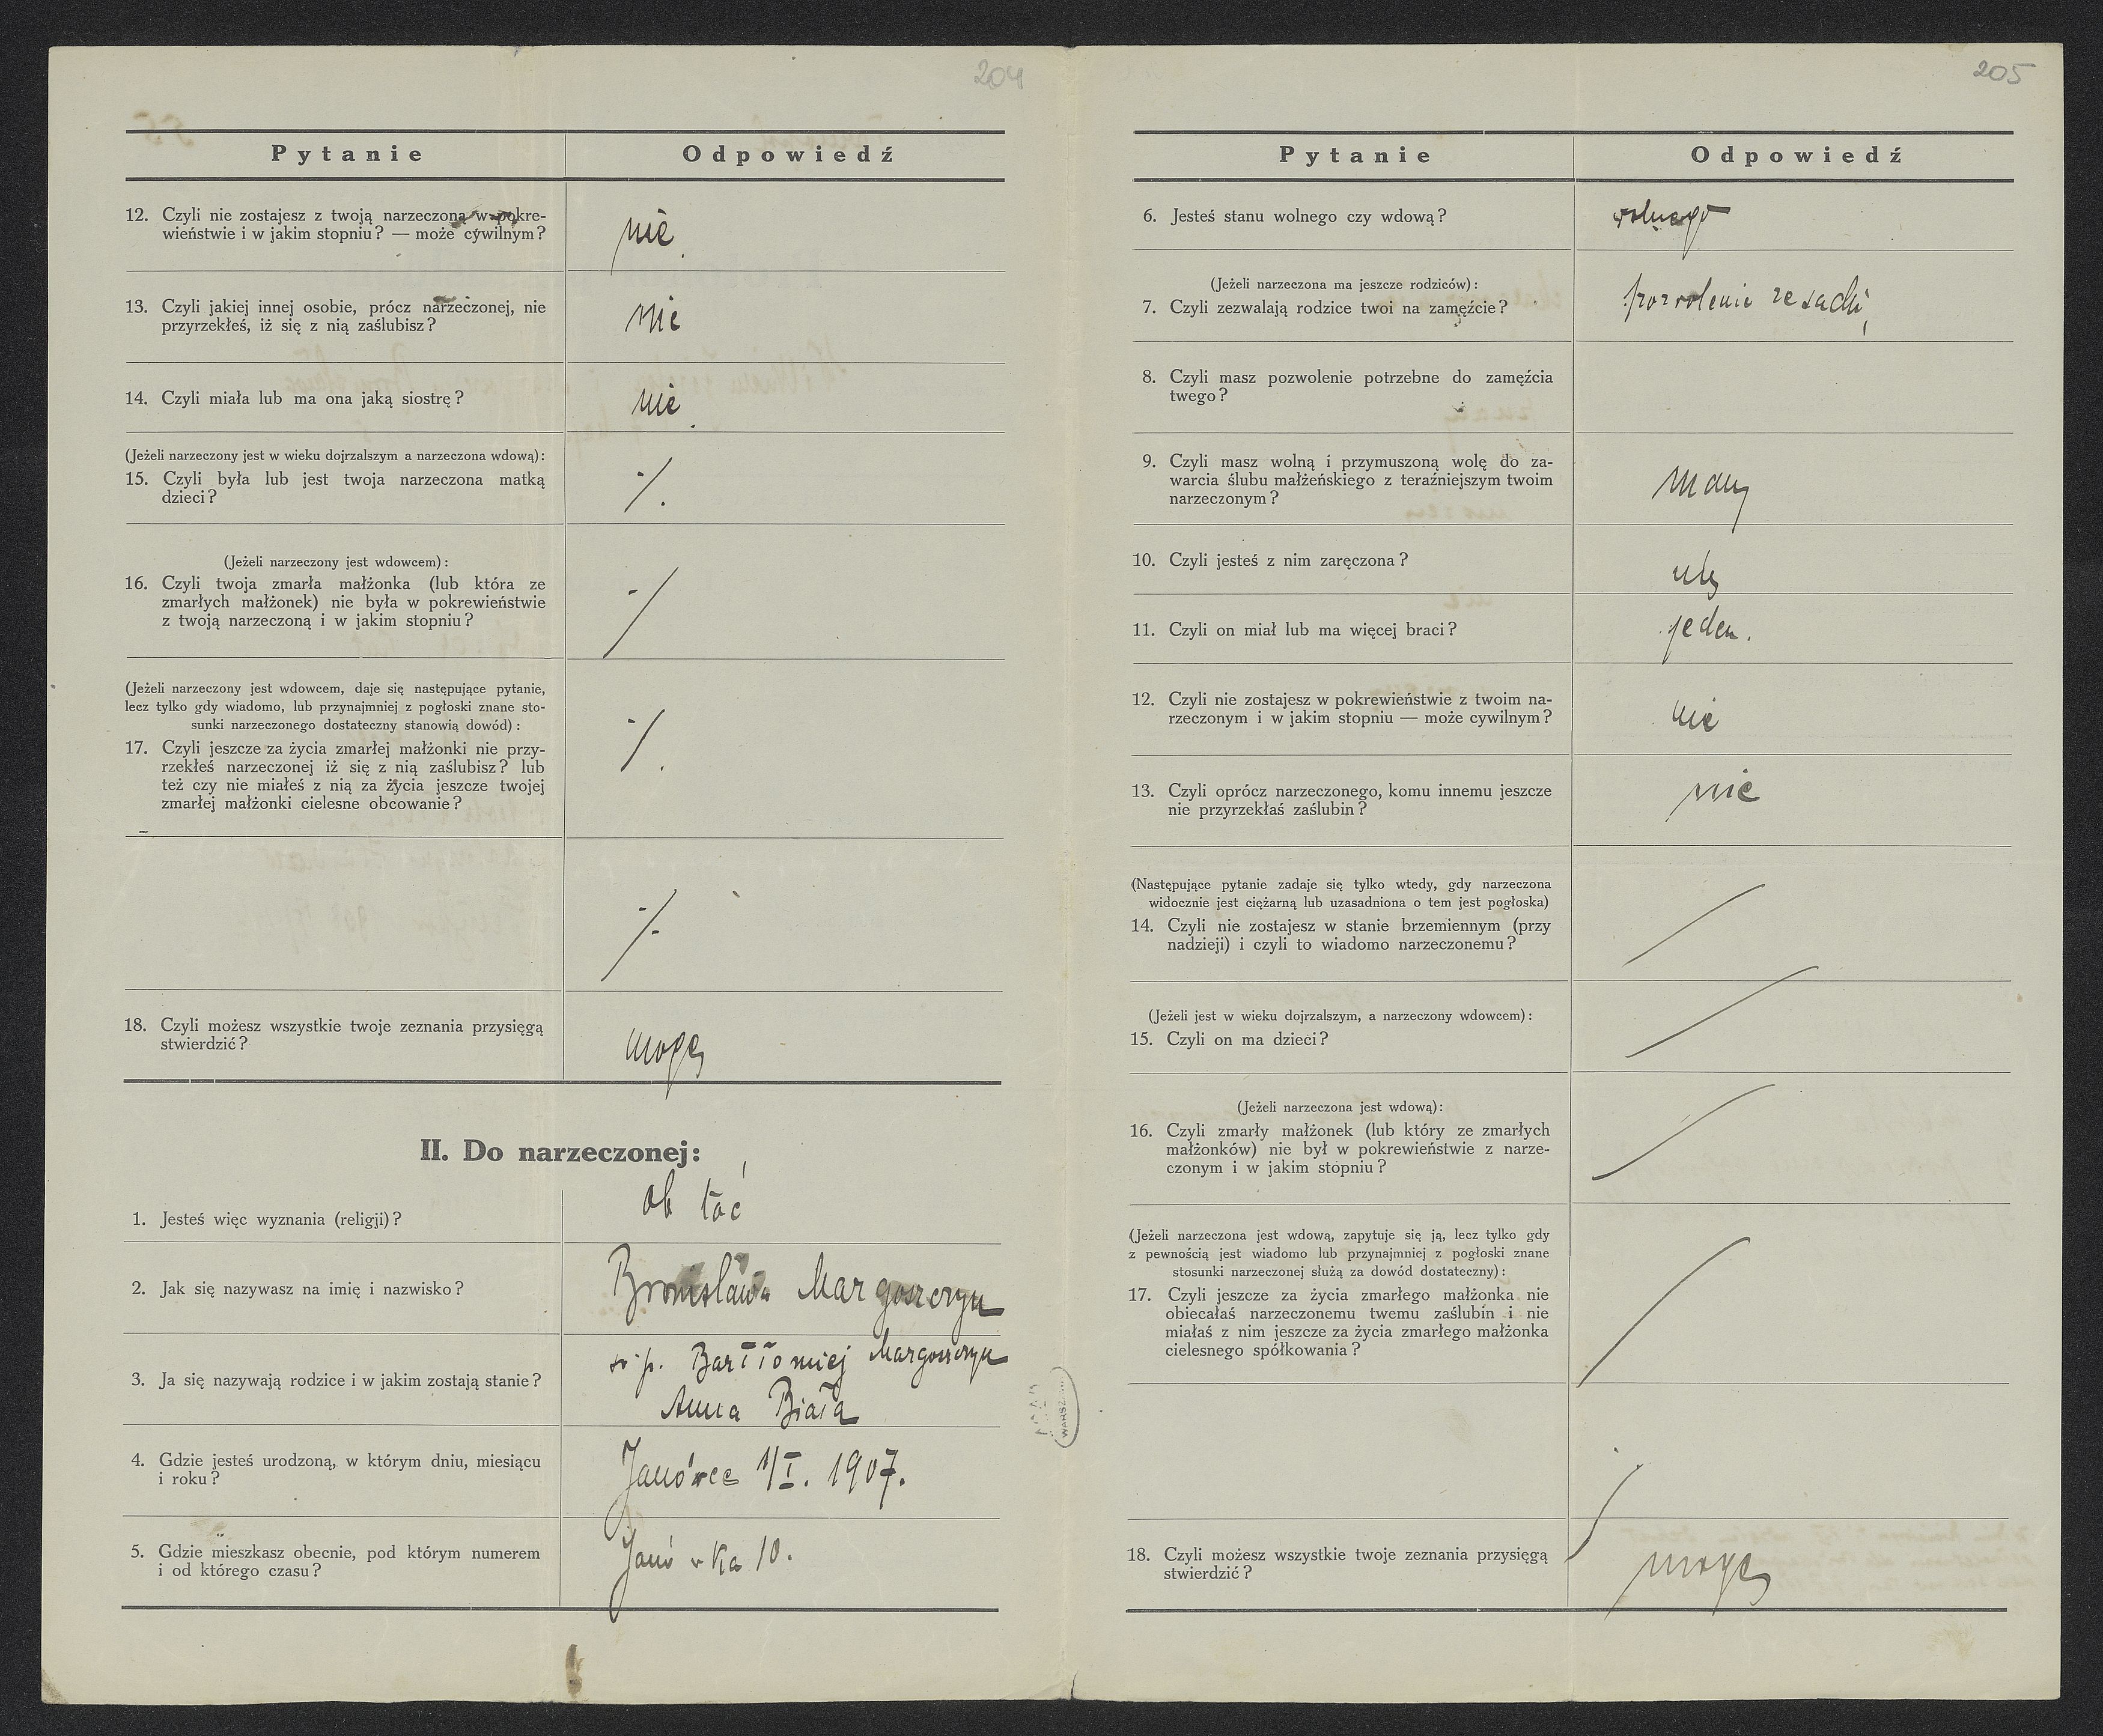 204
Pytanie
Odpowiedź
12. Czyli nie zostajesz z twoją narzeczoną w pokre-
wieństwie i w jakim stopniu? — może cywilnym?
nie
13. Czyli jakiej innej osobie, prócz narzeczonej, nie
przyrzekłeś, iż się z nią zaślubisz?
nie
14. Czyli miała lub ma ona jaką siostrę?
nie
(Jeżeli narzeczony jest w wieku dojrzalszym a narzeczona wdową):
15. Czyli była lub jest twoja narzeczona matką
dzieci?
(Jeżeli narzeczony jest wdowcem):
16. Czyli twoja zmarła małżonka (lub która ze
zmarłych małżonek) nie była w pokrewieństwie
z twoją narzeczoną i w jakim stopniu?
(Jeżeli narzeczony jest wdowcem, daje się następujące pytanie,
lecz tylko gdy wiadomo, lub przynajmniej z pogłoski znane sto-
sunki narzeczonego dostateczny stanowią dowód):
17. Czyli jeszcze za życia zmarłej małżonki nie przy-
rzekłeś narzeczonej iż się z nią zaślubisz? lub
też czy nie miałeś z nią za życia jeszcze twojej
zmarłej małżonki cielesne obcowanie?
18. Czyli możesz wszystkie twoje zeznania przysięgą
stwierdzić?
mogę
II. Do narzeczonej:
1. Jesteś więc wyznania (religji)?
ob łać
2. Jak się nazywasz na imię i nazwisko?
Bronisława Margoszczyn
3. Ja się nazywają rodzice i w jakim zostają stanie?
ś. p. Bartłomiej Margoszczyn
Anna Biała
4. Gdzie jesteś urodzoną, w którym dniu, miesiącu
i roku?
Janówce 1/I. 1907.
5. Gdzie mieszkasz obecnie, pod którym numerem
i od którego czasu?
Janówka 10.
205
Pytanie
Odpowiedź
6. Jesteś stanu wolnego czy wdową?
wolnego
(Jeżeli narzeczona ma jeszcze rodziców):
7. Czyli zezwalają rodzice twoi na zamężcie?
pozwolenie
8. Czyli masz pozwolenie potrzebne do zamężcia
twego?
9. Czyli masz wolną i przymuszoną wolę do za-
warcia ślubu małżeńskiego z teraźniejszym twoim
narzeczonym?
mam
10. Czyli jesteś z nim zaręczona?
11. Czyli on miał lub ma więcej braci?
jeden.
12. Czyli nie zostajesz w pokrewieństwie z twoim na-
rzeczonym i w jakim stopniu — może cywilnym?
nie
13. Czyli oprócz narzeczonego, komu innemu jeszcze
nie przyrzekłaś zaślubin?
nie
(Następujące pytanie zadaje się tylko wtedy, gdy narzeczona
widocznie jest ciężarną lub uzasadniona o tem jest pogłoska)
14. Czyli nie zostajesz w stanie brzemiennym (przy
nadzieji) i czyli to wiadomo narzeczonemu?
(Jeżeli jest w wieku dojrzalszym, a narzeczony wdowcem):
15. Czyli on ma dzieci?
(Jeżeli narzeczona jest wdową):
16. Czyli zmarły małżonek (lub który ze zmarłych
małżonków) nie był w pokrewieństwie z narze-
czonym i w jakim stopniu?
(Jeżeli narzeczona jest wdową, zapytuje się ją, lecz tylko gdy
z pewnością jest wiadomo lub przynajmniej z pogłoski znane
stosunki narzeczonej służą za dowód dostateczny):
17. Czyli jeszcze za życia zmarłego małżonka nie
obiecałaś narzeczonemu twemu zaślubin i nie
miałaś z nim jeszcze za życia zmarłego małżonka
cielesnego spółkowania?
18. Czyli możesz wszystkie twoje zeznania przysięgą
stwierdzić?
mogę